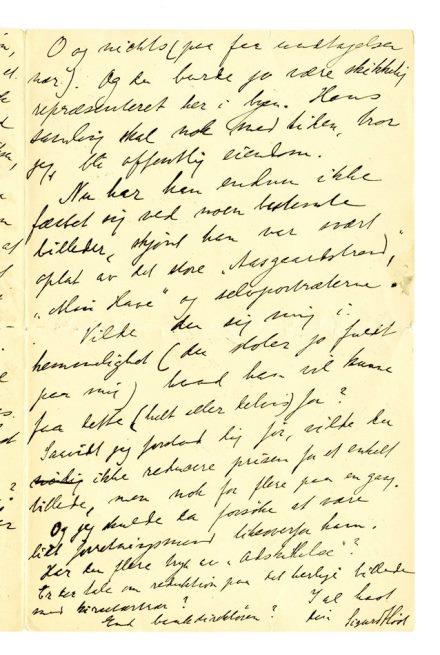 O og nichts (paa faa undtagelser
nær). Og du burde jo være skikkelig
repræsenteret her i byen. Hans
samling skal nok med tiden, tror
jeg, bli offentlig eiendom.
Nu har han endnu ikke
fæstet sig ved noen bestemte
billeder, skjønt han var svært
optat av det store „Aasgaardstrand",
„Min Have" og selvportræterne.
Vilde du sig mig i
hemmelighet (du stoler jo fuldt
paa mig) hvad han vil kunne
faa dette (helt eller delvis) for?
Saavidt jeg forstod dig før, vilde du
ikke redusere prisen for et enkelt
billede, men nok for flere paa en gang.
Og jeg skulde da forsøke at være
litt forretningsmand likeoverfor ham.
Har du flere tryk av „Adskillelse"?
Er der tale om reduktion paa det herlige billede
med
End bankdirektøren? I al hast
din Sigurd Høst